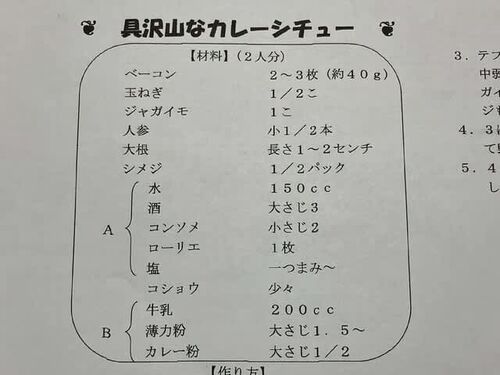 具沢山なカレーシチュー
【材料】（２人分）
ベーコン　２～３枚（約４０ｇ）
玉ねぎ　１／２こ
ジャガイモ　１こ
人参　小１／２本
大根　長さ１～２センチ
シメジ　１／２パック
水　１５０ｃｃ
酒　大さじ３
A　コンソメ　小さじ２
ローリエ　１枚
塩　一つまみ～
コショウ　少々
牛乳　２００ｃｃ
B　薄力粉　大さじ１．５～
カレー粉　大さじ１／２
【作り方】
３．テフ
中弱
ガイ
ジモ
４．３に
て野
５．４
し